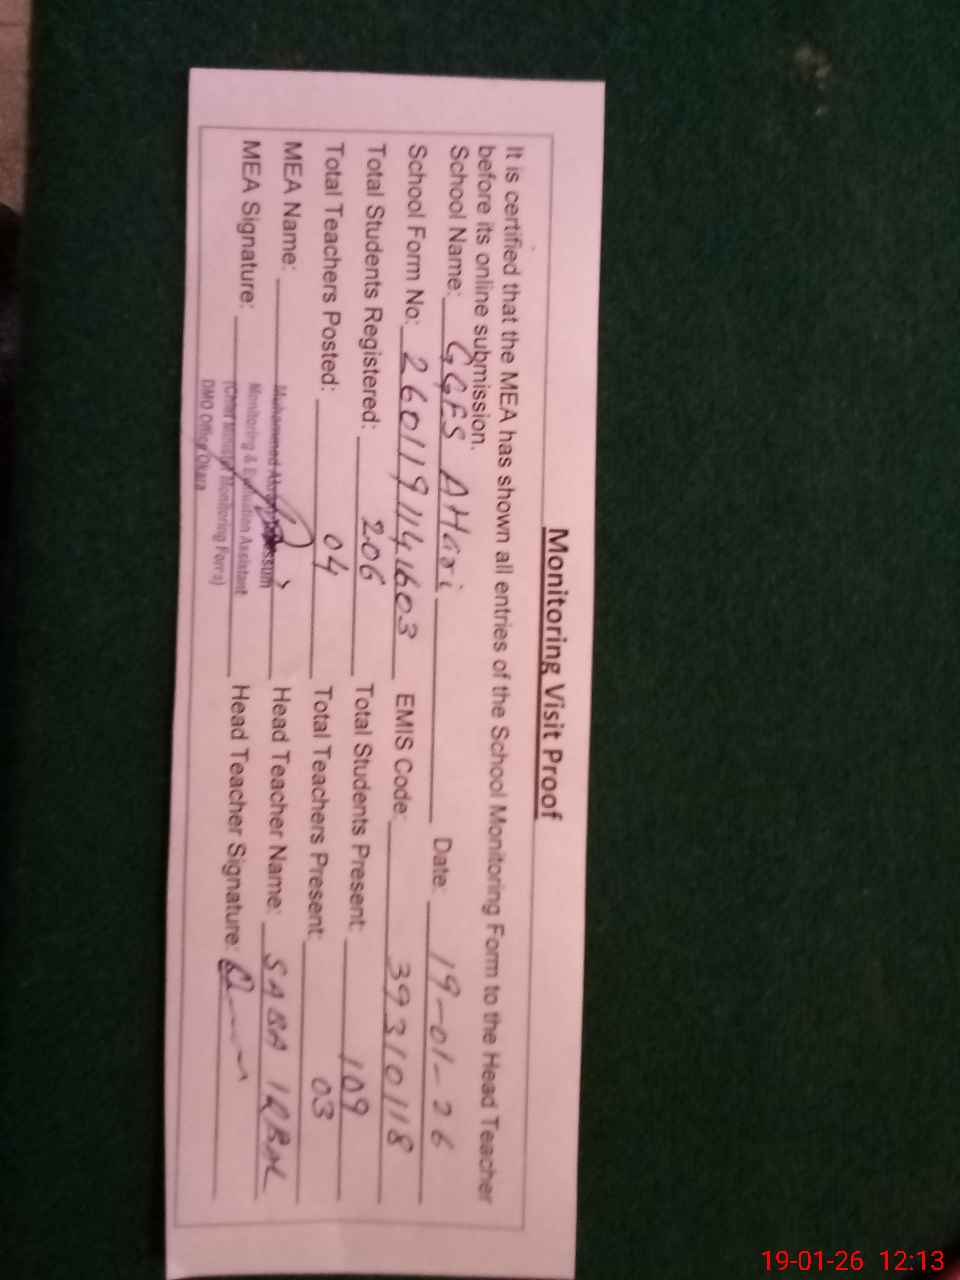 Monitoring Visit Proof
It is certified that the MEA has shown all entries of the School Monitoring Form to the Head Teacher
before its online submission.
School Name: GGES AHari Date: 19-01-26
School Form No: 2601191141603 EMIS Code: 39310118
Total Students Registered: 206 Total Students Present: 109
Total Teachers Posted: 04 Total Teachers Present: 03
MEA Name: Muhammad Head Teacher Name: SABA IQBAL
Monitoring & Evaluation Assistant
MEA Signature: Head Teacher Signature:
(Chief Minister Monitoring Force)
DMO Office Okara
19-01-26 12:13